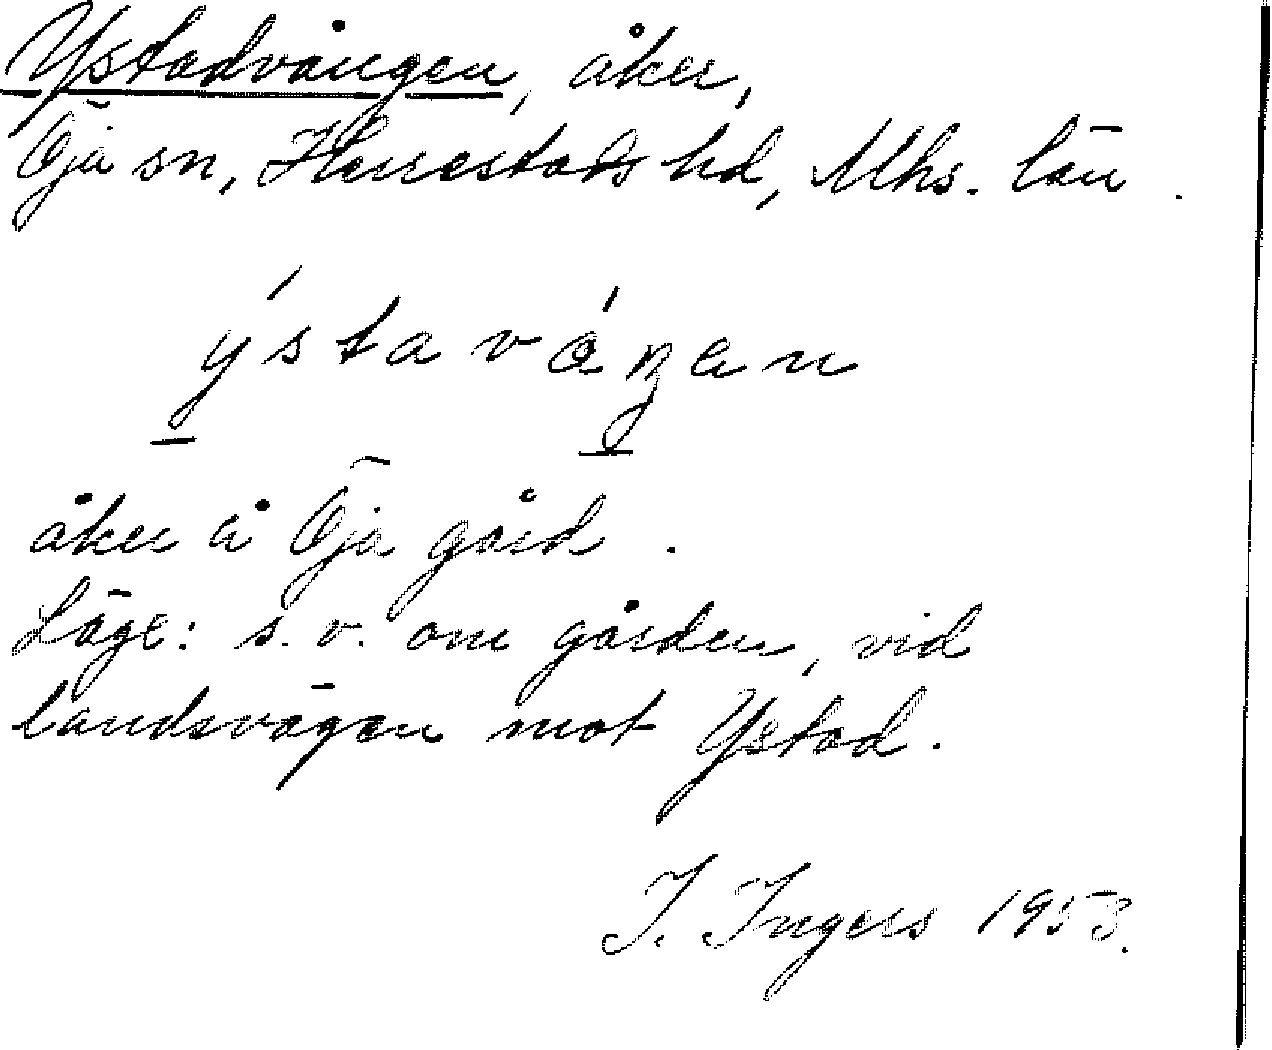 Ystadvången, åker,
Öja sn, Herrestads hd, Mhs. län.
ýstaváŋen
åker å Öja gård.
Läge: s.v. om gården, vid
landsvägen mot Ystad.
I. Ingers 1953.